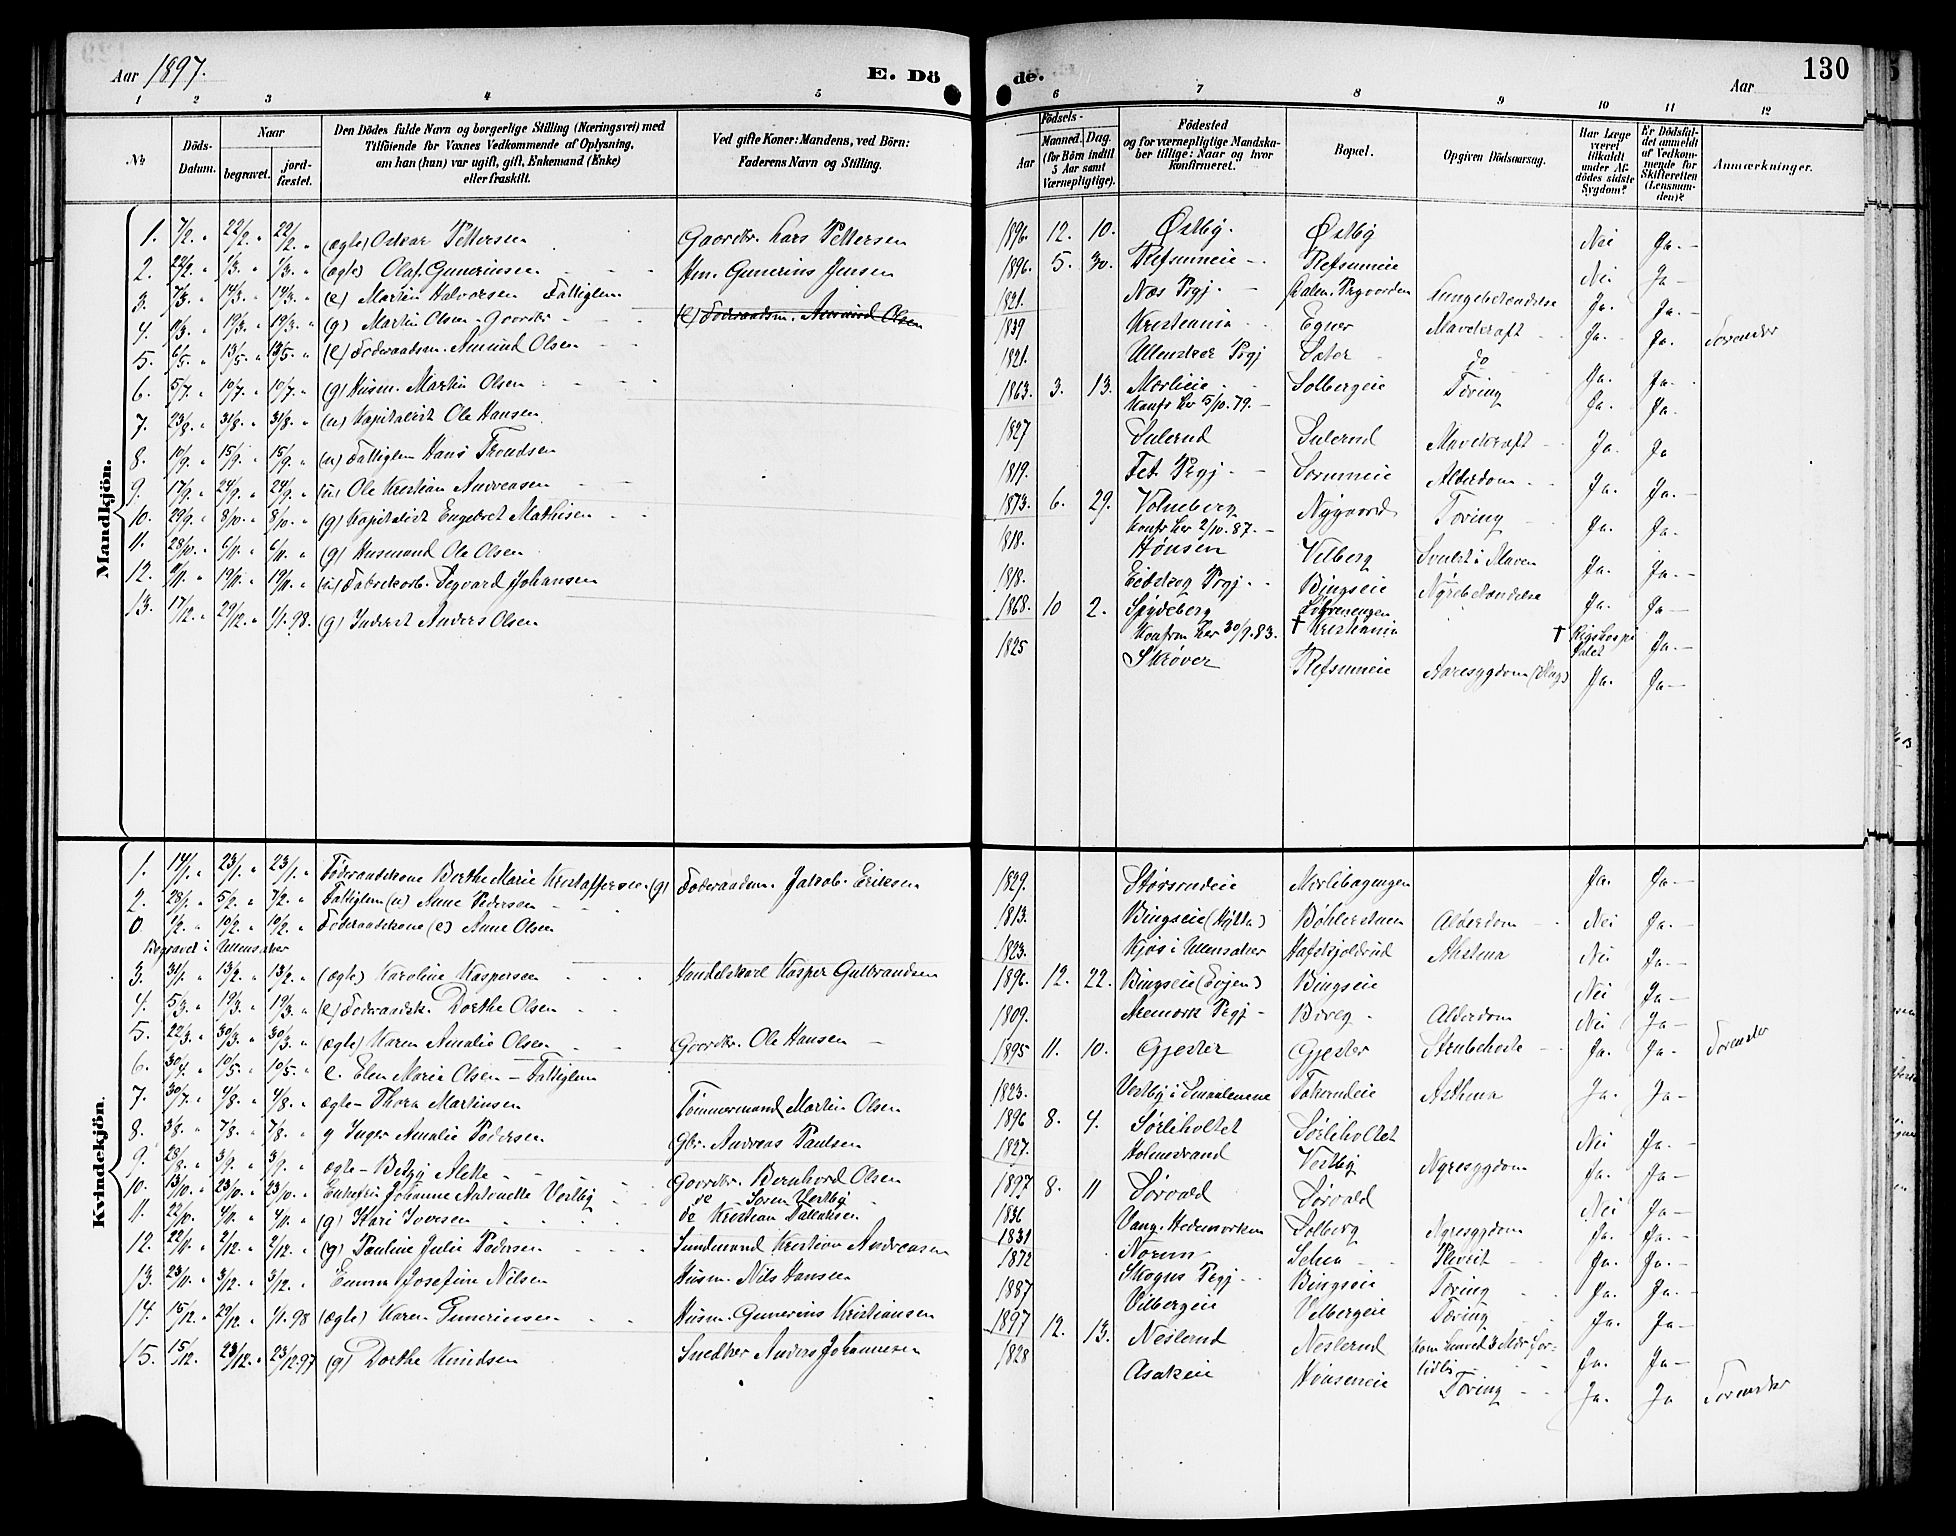 Aar 1897.
E. Dö
de.
Aar
130
1 2 3 4 5
6 7 8 9 10 11 12
No
Döds-Datum.
Naar
begravet.
jord-fæstet.
Den Dödes fulde Navn og borgerlige Stilling (Næringsvei) med
Tilföiende for Voxnes Vedkommende af Oplysning,
om han (hun) var ugift, gift, Enkemand (Enke)
eller fraskilt.
Ved gifte Koner: Mandens, ved Börn:
Faderens Navn og Stilling.
Födsels-
Aar
Maaned. Dag.
(for Börn indtil
5 Aar samt
Værnepligtige).
Födested
og for værnepligtige Mandska-
ber tillige: Naar og hvor
konfirmeret.
Bopæl.
Opgiven Dödsaarsag.
Har Læge
været
tilkaldt
under Af-
dödes sidste
Sygdom?
Er Dödsfal-
det anmeldt
af Vedkom-
mende for
Skifteretten
(Lensman-
den)?
Anmærkninger.
Mandkjön.
1. 7/2. " 22/2. " 22/2. " (ægte) Oskar Pettersen Gaardbr. Lars Pettersen 1896. 12. 10. Østby. Østby Nei Ja.
2. 22/2. " 1/3. " 1/3. " (ægte) Olaf Gunerinsen Hm. Gunerius Jensen 1896. 5. 30. Refsumeie Refsumeie Nei Ja
3. 7/3. " 14/3. " 14/3. " (e) Martin Halvorsen Fattiglem 1821. Næs Prgj. Lungebetændelse Ja. Ja.
4. 11/3. " 19/3. " 19/3. " (g) Martin Olsen Gaardbr (e) Föderaadsm. Amund Olsen 1839 Kristiania Egner Mavekræft Ja. Ja. Tvender
5. 6/5. " 13/5. " 13/5. " (e) Föderaadsm. Amund Olsen 1821. Ullensaker Prgj Sæter do Ja. Ja.
6. 5/7. " 10/7. " 10/7. " (g) Husm. Martin Olsen 1863. 3. 13. Mørlieie Solbergeie Tæring Ja. Ja.
Konfr her 5/10. 79.
7. 23/8. " 31/8. " 31/8. " (u) Kapitalist Ole Hansen 1827 Sulerud Sulerud Mavekræft Ja. Ja
8. 10/9. " 15/9. " 15/9. " (u) Fattiglem Hans Trondsen 1819. Fet Prgj. Sørumeie Alderdom Ja. Ja.
9. 17/9. " 24/9. " 24/9. " (u) Ole Kristian Andreasen 1873. 6. 29. Volneberg Nygaard Tæring Ja. Ja.
Konfr her 2/10. 87.
10. 29/9. " 8/10. " 8/10. " (g) Kapitalist Engebret Mathisen 1818. Hønsen Vilberg Svulst i Maven Ja. Ja.
11. 28/10. " 6/11. " 6/11. " (g) Husmand Ole Olsen 1818. Eidskog Prgj. Bingseie Nyrebetændelse Ja. Ja
12. 11/11. " 19/11. " 19/11. " (u) Fabrikarb. Sigvard Johansen 1868. 10 2. Spydeberg Løkrenengen † Rigshospitalet Ja.
Konfrm her 30/9. 83. † Kristiania
13. 17/12. " 29/12. " 1/1. 98. (g) Inderst Anders Olsen 1825 Skrøver Refsumeie Aaresygdom (Slag) Ja. Ja
Kvindekjön.
1. 14/1. " 23/1. " 23/1. " Föderaadskone Berthe Marie Kristoffersen (g) Föderaadsm. Jakob Eriksen 1829. Størsrudeie Mørlibagengen Ja. Ja
2. 28/1. " 5/2. " 7/2. " Fattiglem (u) Anne Pedersen 1813. Bingseie (Hytta) Bøhlerstuen Alderdom Nei Ja.
0 1/2. " 10/2. " 10/2. " Föderaadskone (e) Anne Olsen 1823. Kjøs i Ullensaker Hafskjoldrud Asthma Nei Ja.
Begravet i Ullensaker
3. 31/1. " 13/2. " 13/2. " (ægte) Karoline Kaspersen Handelskarl Kasper Gulbrandsen 1896. 12. 22. Bingseie (Evjen) Bingseie Nei Ja
4. 5/3. " 19/3. " 19/3. " (e) Föderaadsk. Dorthe Olsen 1809. Aremark Prgj Alderdom Nei Ja
5. 22/3. " 30/3. " 30/3. " (ægte) Karen Amalie Olsen Gaardbr. Ole Hansen 1895 11. 10. Gjester Gjester Strubehoste Ja. Ja. Tvender
6. 30/4. " 10/5. " 10/5. " e. Elen Marie Olsen Fattiglem 1823. Vestby i Smaalenene Asthma Ja. Ja
7. 30/7. " 4/8. " 4/8. " ægte Thora Martinsen Tømmermand Martin Olsen 1896 8. 4. Sørliholtet Sørliholtet Nei Ja.
8. 3/8. " 7/8. " 7/8. " g Inger Amalie Pedersen Gbr. Andreas Paulsen 1827. Holmestrand Vestby Nyresygdom Ja. Ja
9. 28/8. " 3/9. " 3/9. " ægte Betzy Alette Gaardbr. Bernhard Olsen 1897 8. 11 Sørvald Sørvald Nei Ja
10. 13/10. " 23/10. " 23/10. " Enkefru Johanne Antonette Vestby do Søren Vestby 1836 Vang Hedemarken Solberg Nyresygdom Ja. Ja.
11. 22/10. " 4/11. " 4/11. " (g) Kari Iversen do Kristian 1831 Norum Ja. Ja.
12. 22/11. " 2/12. " 2/12. " (g) Pauline Julie Pedersen Sundmand Kristian Andreasen 1872 Skogns Prgj Bingseie Tæring Ja. Ja.
13. 23/11. " 3/12. " 3/12. " Emma Josefine Nilsen Husm. Nils Hansen 1887 Vilbergeie Velbergeie Tæring Ja. Ja
14. 15/12. " 29/12. " 1/1 98 (ægte) Karen Gunerinsen Husm. Gunerius Kristiansen 1897 12. 13. Neslerud Neslerud Kom herved 3 Mdr for tidlig Ja. Ja
15. 15/12. 23/12. " 23/12 97 (g) Dorthe Knudsen Snedker Anders Johannesen 1828 Asakeie Hønseneie Tæring Ja. Ja Tvender